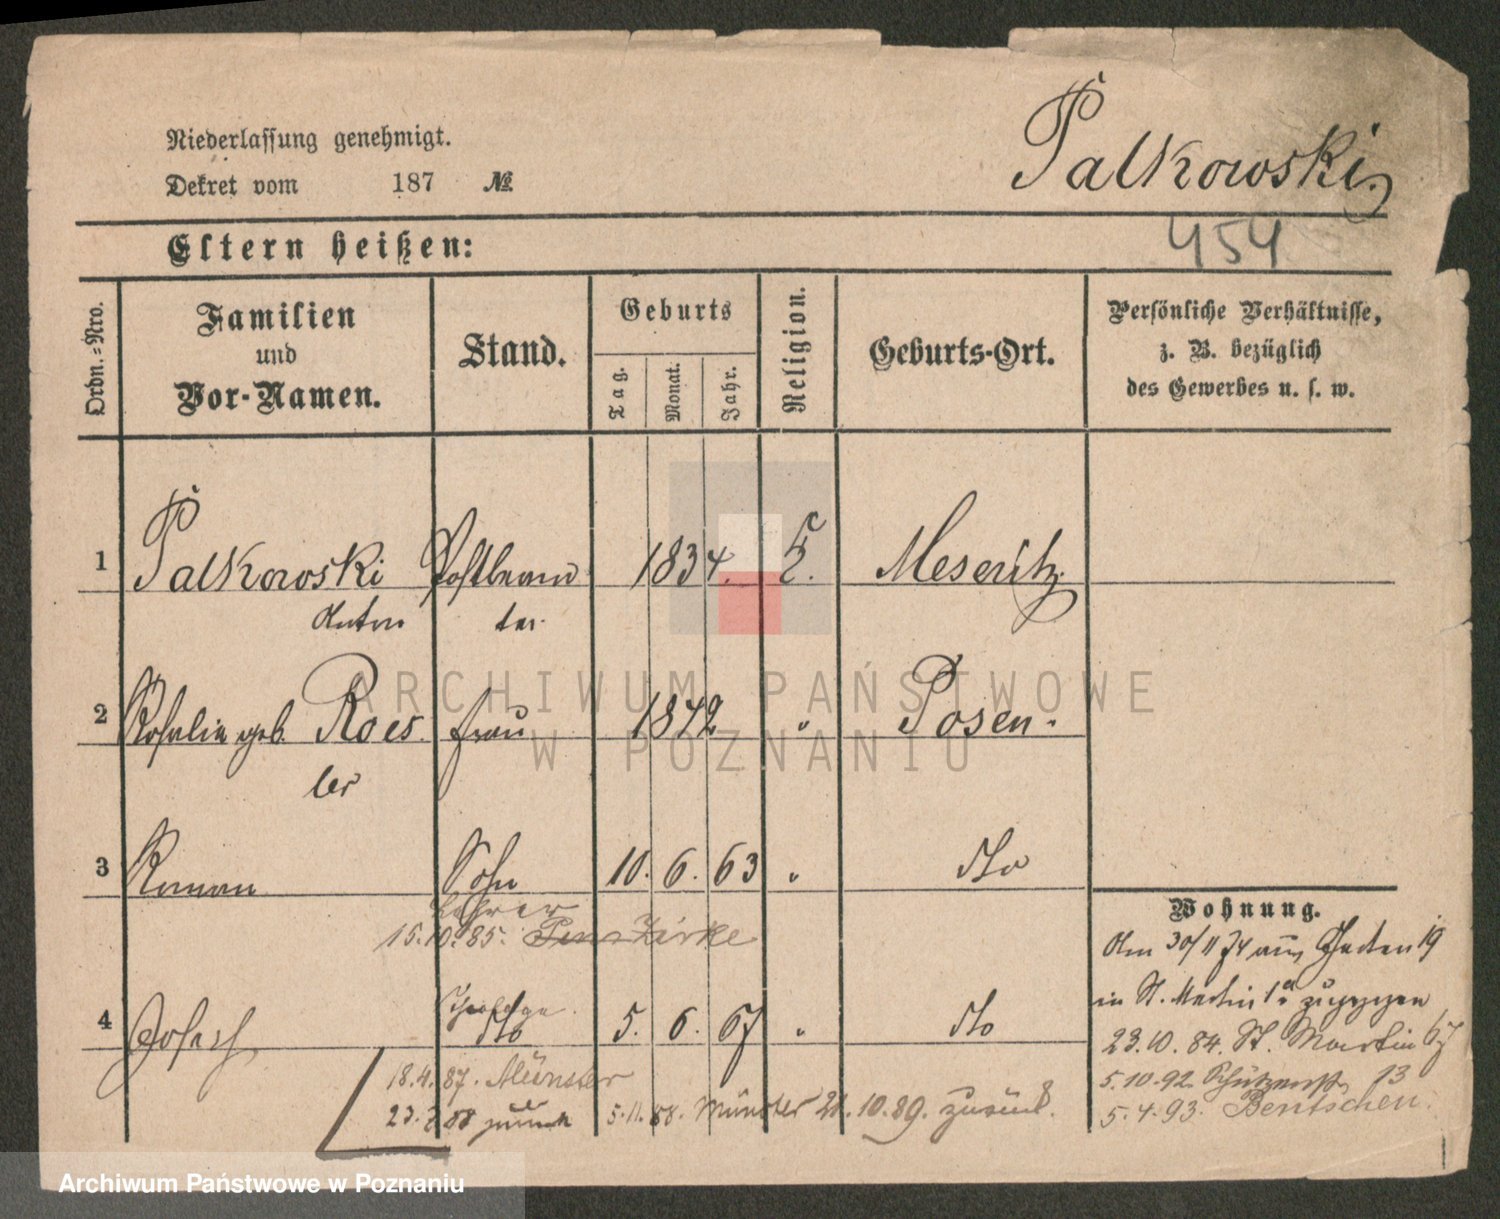 Palkowski.
Niederlassung genehmigt.
Dekret vom 187 №.
454
Eltern heißen:
Ordn.-Nro.
Familien und Vor-Namen.
Stand.
Geburts
Tag.
Monat.
Jahr.
Religion.
Geburts-Ort.
Persönliche Verhältnisse,
z. B. bezüglich
des Gewerbes u. s. w.
1 Palkowski Postbeam 1834. Meseritz.
Anton ter.
2 Rosalie geb. Roes Frau 1842 " Posen.
ler
3 Roman Sohn 10. 6. 63 " dto
Lehrer
15.10.85. Zirke
Wohnung.
Am 30/11 74 aus Garten 19
4 Josef Theologe dto 5. 6. 67 " dto
in St. Martin zugezogen
23.10.84. St. Martin 67
18.4.87. Münster
5.10.92. Schützenstr. 13
23. 88 zurück 5.11.88. Münster 21.10.89. zurück.
5.4.93. Bentschen.
ARCHIWUM PAŃSTWOWE
W POZNANIU
Archiwum Państwowe w Poznaniu